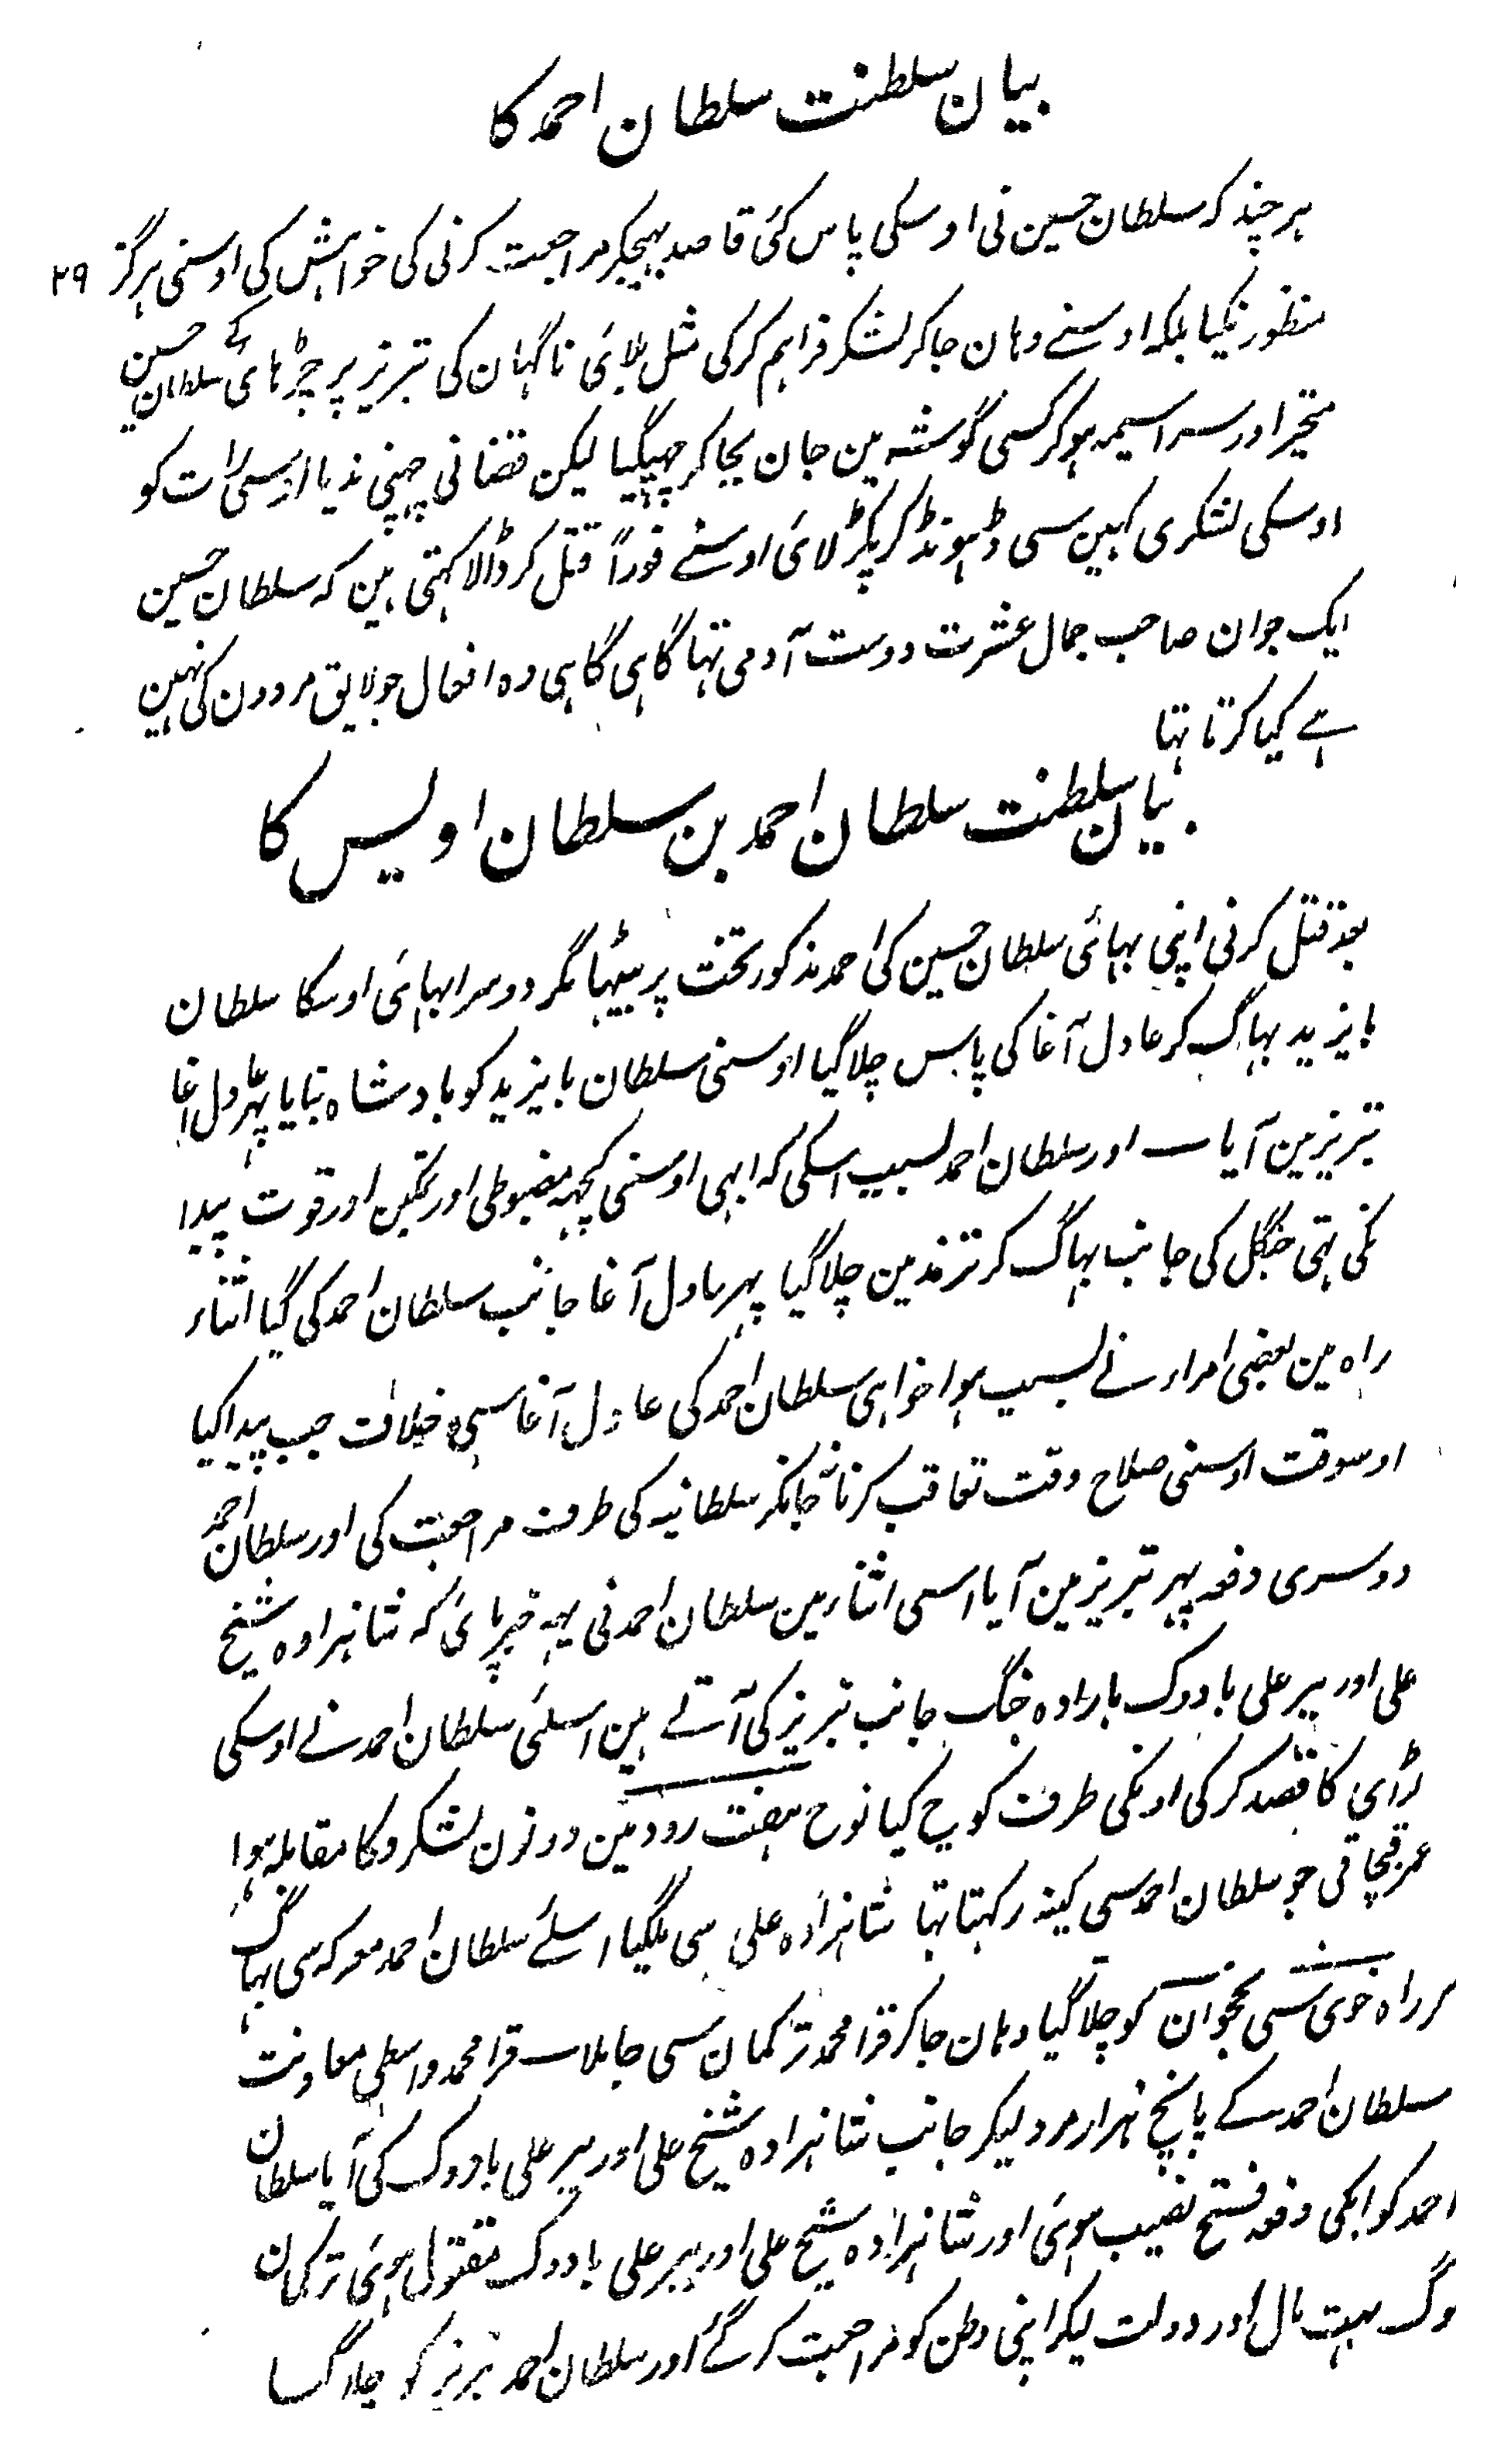 بیان سلطنت سلطان احمد کا
ہر چند کہ سلطان حسین نی اوسکی پاس کئی قاصد بہیجکر مراجعت کرنی کی خواہش کی اوسنی ہرگز ۲۹
منظور نکیا بلکہ اوسنے وہان جاکر لشکر فراہم کرکی مثل بلائی ناگہان کی تبریز پر چڑہائی کے سلطان حسین
متحیر اور سراسیمہ ہوکر کسی گوشہ مین جان بچاکر چہپگیا لیکن قضا نی چہپنی ندیا اوسی رات کو
اوسکی لشکری کہین سی ڈہونڈ کر پکڑ لائی اوسنے فوراً قتل کر ڈالا کہتی ہین کہ سلطان حسین
ایک جوان صاحب جمال عشرت دوست آدمی تہا گاہی گاہی وہ افعال جو لایق مردون کی نہین
ہے کیا کرتا تہا
بیان سلطنت سلطان احمد بن سلطان اویس کا
بعد قتل کرنی اپنی بہائی سلطان حسین کی احمد مذکور تخت پر بیٹہا مگر دوسرا بہائی اوسکا سلطان
بایزید بہاگ کر عادل آغا کی پاس چلا گیا اوسنی سلطان بایزید کو بادشاہ بنایا پہر عادل آغا
تبریز مین آیا اور سلطان احمد بسبب اسکی کہ ابہی اوسنی کچہہ مضبوطی اور تمکین اور قوت پیدا
نکی تہی جنگل کی جانب بہاگ کر ترندمین چلا گیا پہر عادل آغا جانب سلطان احمد کی گیا اثناء
راہ مین بعضی امراء نے بسبب ہوا خواہی سلطان احمد کی عادل آغا سی خلاف جب پیدا کیا
اوسوقت اوسنی صلاح وقت تعاقب کرنا نجانکر سلطانیہ کی طرف مراجعت کی اور سلطان احمد
دوسری دفعہ پہر تبریز مین آیا اسی اثناء مین سلطان احمد نی یہہ خبر پائی کہ شاہزادہ شیخ
علی اور پیر علی بادوک بارادہ جنگ جانب تبریز کی آتے ہین اسلئی سلطان احمد نے اوسکی
لڑائی کا قصد کرکی اونکی طرف کوچ کیا نوح ہفت رود مین دونون لشکرو کا مقابلہ ہوا
عمر قبچاقی جو سلطان احمد سی کینہ رکہتا تہا شاہزادہ علی سی ملگیا اسلئے سلطان احمد معرکہ سی بہاگ
کر راہ خوی سی نخجوان کو چلا گیا وہان جاکر قرا محمد ترکمان سی جا ملا قرا محمد واسطی معاونت
سلطان احمد کے پانچ ہزار مرد لیکر جانب شاہزادہ شیخ علی اور پیر علی بادوک کی آیا سلطان
احمد کو ابکی دفعہ فتح نصیب ہوئی اور شاہزادہ شیخ علی اور پیر علی بادوک مقتول ہوئی ترکمان
لوگ بہت مال اور دولت لیکر اپنی وطن کو مراجعت کر گئے اور سلطان احمد تبریز کو چلا گیا